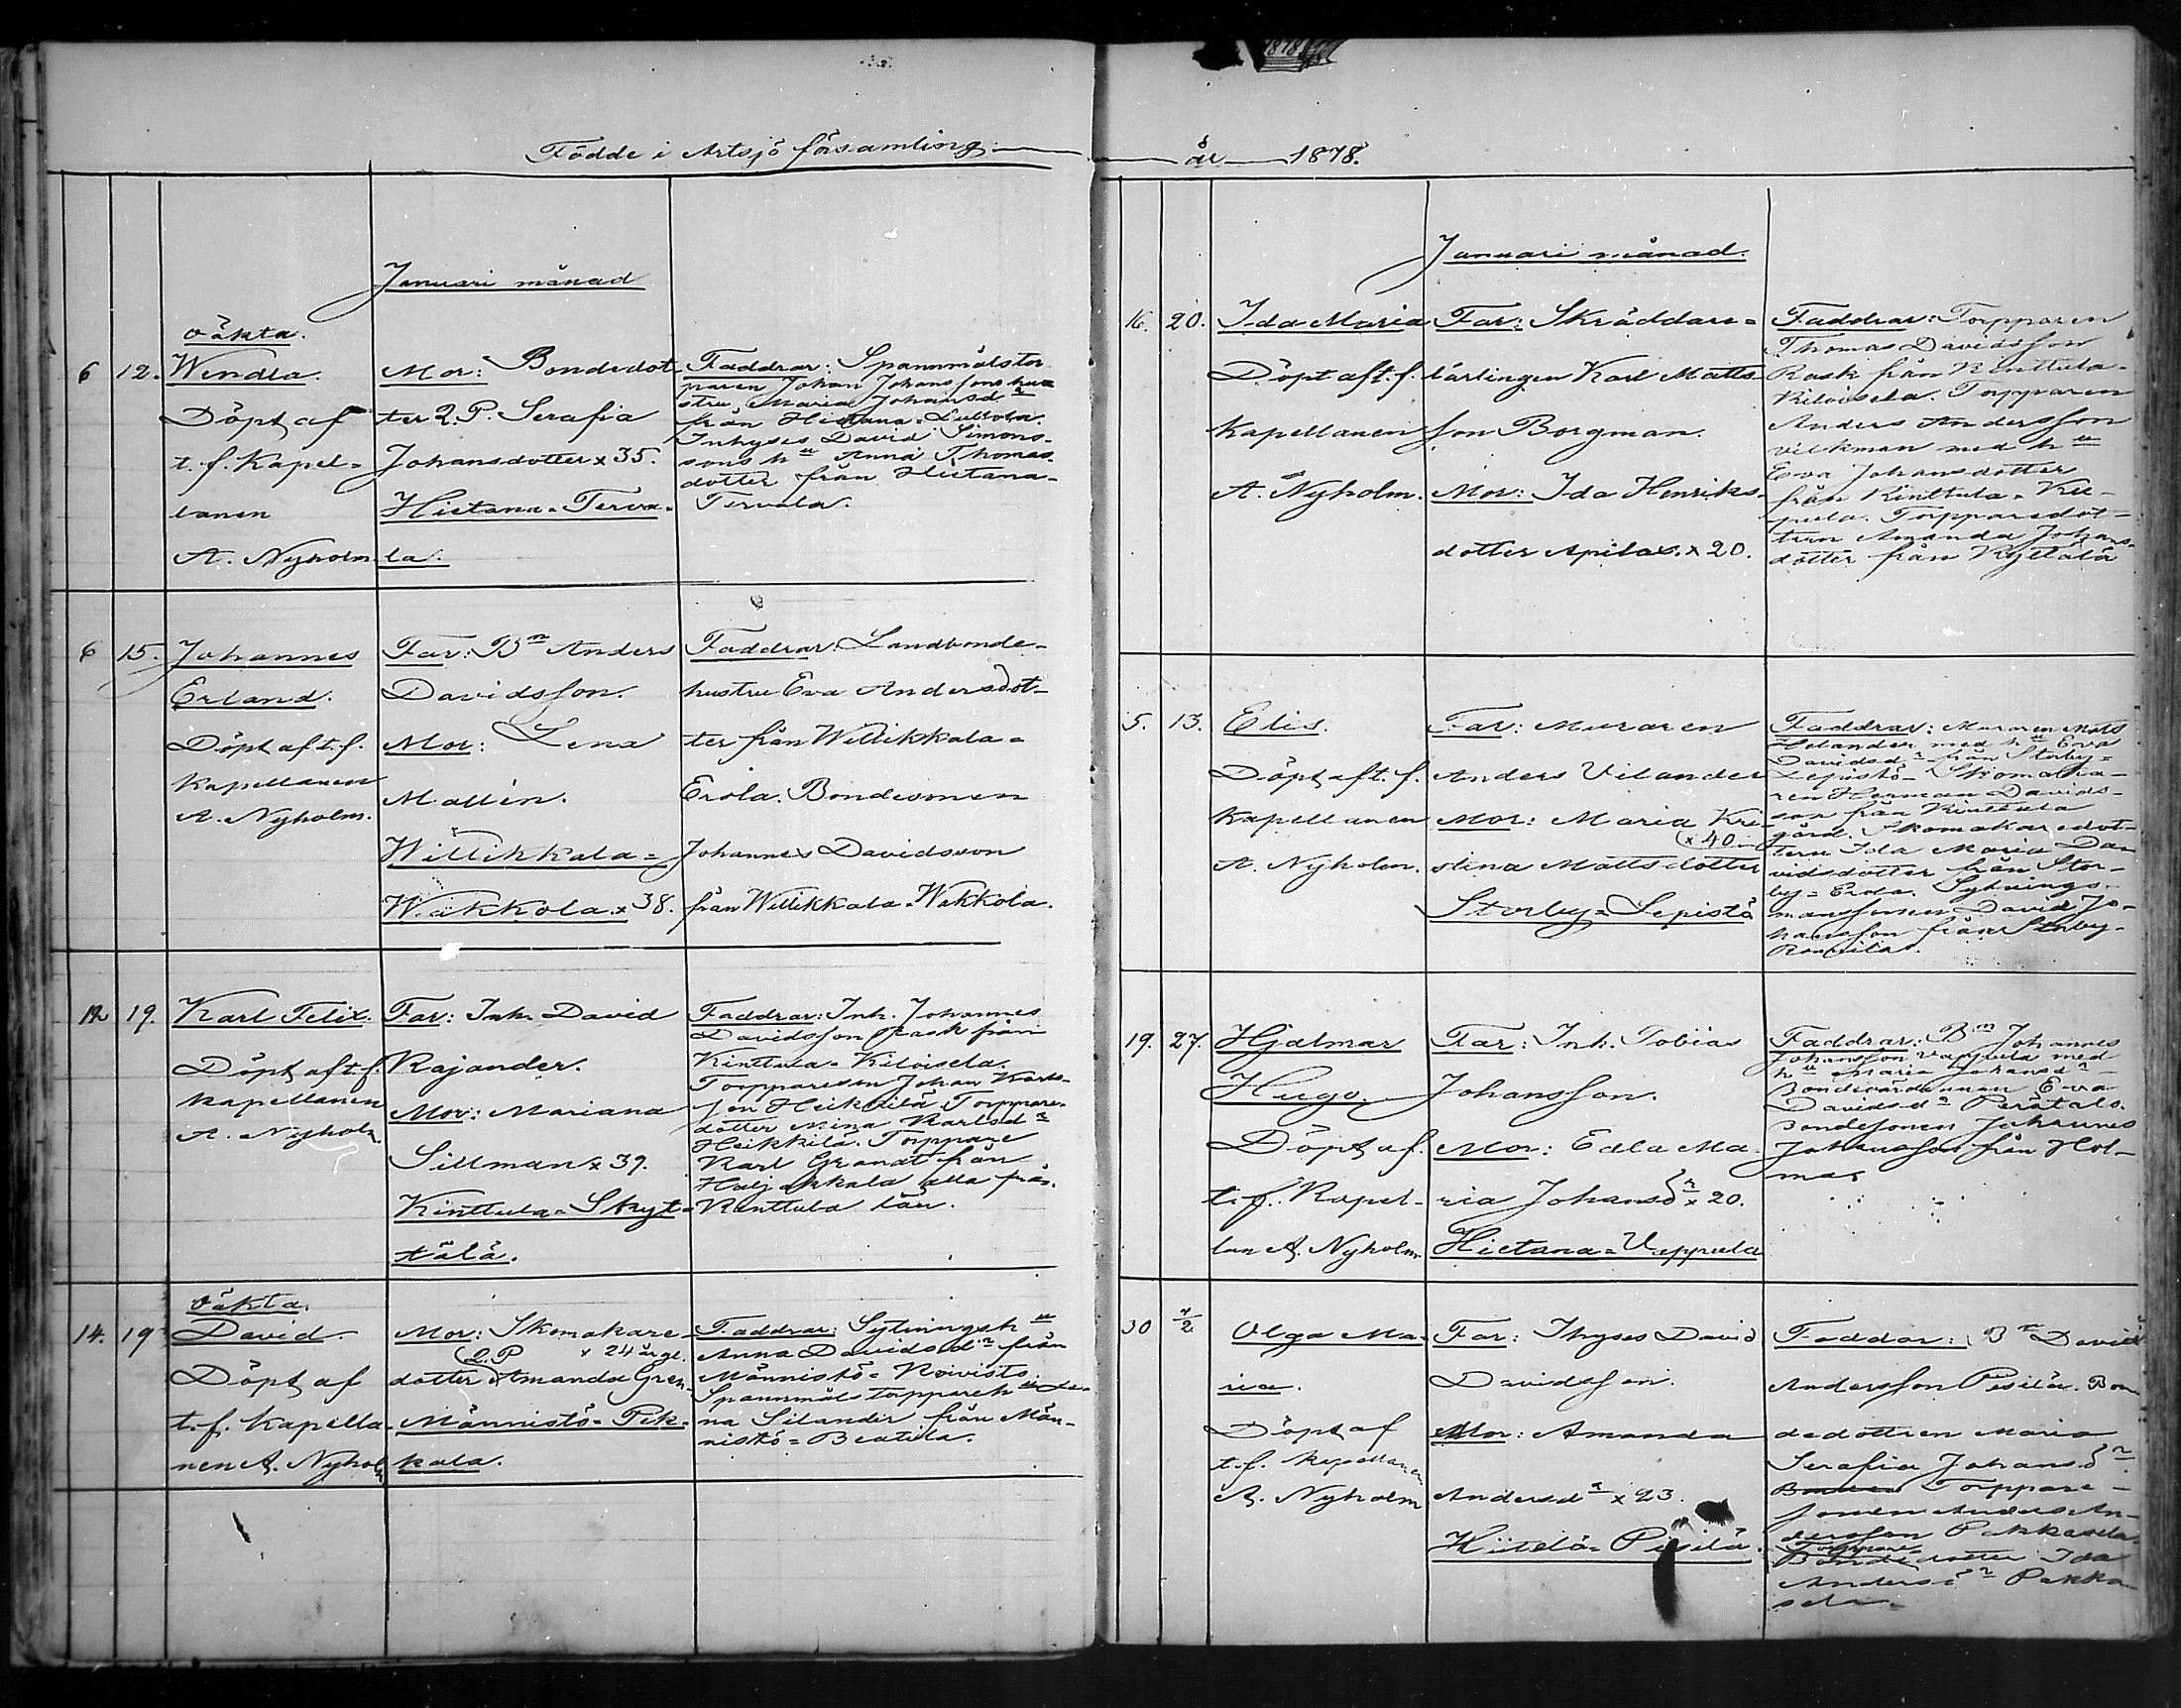 Födde i Artsjö församling år 1878.
Januari månad
oäkta.
6 12. Wendla.
Döpt af
t. f. Kapel=
lanen
A. Nyholm.
Mor: Bondedot
ter Q. P. Serafia
Johansdotter x 35.
Hietana=Terva=
la.
Faddrar: Spannmålstor
paren Johan Johanssons hu
stru Maria Johansd r
från Hietana=
Inhyses David Simons-
sons h u Anna Thomas
dotter från Hietana-
Tervala.
6 15. Johannes
Erland.
Döpt af t. f.
Kapellanen
A. Nyholm.
Far: B n Anders
Davidsson.
Mor: Lena
Mallén.
Willikkala=
Wäkkola. x 38.
Faddrar: Landbonde-
hustru Eva Andersdot-
ter från Willikkala=
Erola. Bondesonen
Johannes Davidsson
från Willikkala=Wäkkola.
12 19. Karl Felix.
Döpt af t. f.
Kapellanen
A. Nyholm
Far: Inh. David
Rajander.
Mor: Mariana
Sillman x 39.
Kinttula=Skyt=
tälä.
Faddrar: Inh. Johannes
Davidsson Rask från
Kinttula=Kiloisela.
Torppareson Johan Karls-
son Heikkilä Torppare-
dotter Mina Karlsd r
Heikkilä. Torppare
Karl Grandt från
alla från
Kinttula län.
oäkta.
14. 19 David.
Döpt af
t. f. Kapella-
nen A. Nyholm
Mor: Skomakare-
Q. P. x 24 år gl.
dotter Amanda Gren
Männistö=Pek-
kala.
Faddrar: Sytningsh u
Anna Davidsd r från
Männistö=Koivisto.
Spannmålstoppareh u Le-
na Silander från Män-
nistö=Beatila.
Januari månad.
16. 20. Ida Maria
Döpt af t. f.
Kapellanen
A. Nyholm.
Far: Skräddare=
lärlingen Karl Matts-
son Borgman.
Mor: Ida Henriks-
dotter Apila. x 20.
Faddrar: Torpparen
Thomas Davidsson
Rask från Kinttula-
Kiloisela. Torpparen
Anders Andersson
Vilkman med h u
Eva Johansdotter
från Kinttula=
Torpparedot=
tern Amanda Johans-
dotter från Kyttälä
5. 13. Elis.
Döpt af t. f.
Kapellanen
A. Nyholm.
Far: Muraren
Anders Vilander
Mor: Maria Kri-
x 40
stina Mattsdotter
Storby=Lepistö
Faddrar: Muraren Mats
med h u Eva
Davidsd r från Storby=
Lepistö- Skomaka-
ren Herman Davids-
son från Kinttula
gård. Skomakaredot-
tern Ida Maria Da-
vidsdotter från Stor-
by= Sytnings-
manssonen David Jo-
hansson från Storby-
19. 27. Hjalmar
Hugo.
Döpt af.
t. f. Kapel-
lan A. Nyholm
Far: Inh. Tobias
Johansson.
Mor: Edla Ma-
ria Johansd r x 20.
Hietana=Uppula
Faddrar: B n Johannes
Johansson med
h u Maria Johansd r
Bondevärdinnan Eva
Davidsd r Perätalo.
Bondesonen Johannes
Johansson från Hol-
mas
30 1/2 Olga Ma-
ria.
Döpt af
t. f. Kapellanen
A. Nyholm
Far: Ihyses David
Davidsson.
Mor: Amanda
Andersd r x 23.
Hiitelä=Pisilä.
Faddar: B n David
Andersson Pisilä. Bon
dedottren Maria
Serafia Johansd r.
Torppare-
sonen Anders An-
dersson Pekkasela
Torppare
dotter Ida
Andersd r Pekka-
sela.